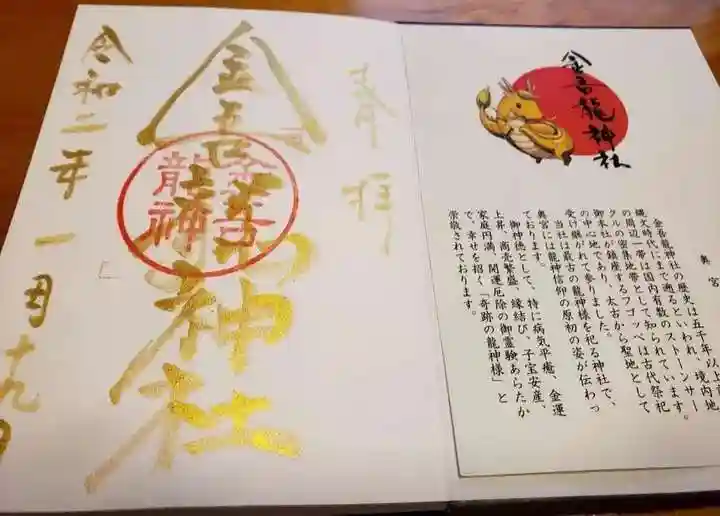 奉拝
金吾龍神社
金吾龍神
令和二年一月十九日
金吾龍神社
奥宮
金吾龍神社の歴史は五千年以上前
縄文時代にまで遡るといわれ、境内地
の周辺一帯は国内有数のストーンサー
クルの密集地帯として知られています。
御本社が鎮座するフゴッペは古代祭祀
の中心地であり、太古から聖地として
受け継がれて参りました。
当神社は最古の龍神様を祀る神社で、
奥宮には龍神信仰の原初の姿が伝わっ
ております。
御神徳として、特に病気平癒、金運
上昇、商売繁盛、縁結び、子宝安産、
家庭円満、開運厄除の御霊験あらたか
で、幸せを招く「奇跡の龍神様」と
崇敬されております。